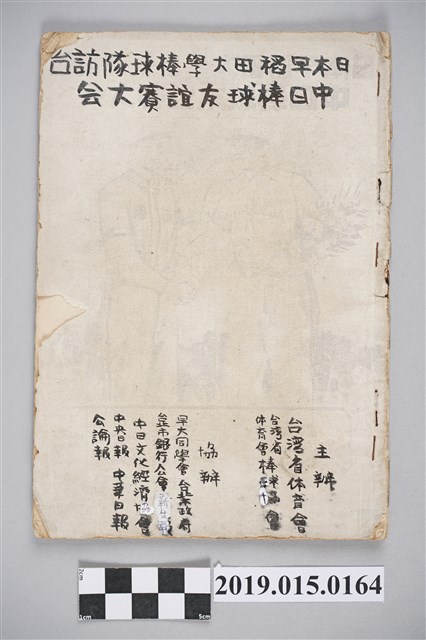 日本早稻田大學棒球隊訪台
中日棒球友誼賽大会
主辦
台湾省体育會
台湾省
体育會棒球協會
協辦
早大同學會 台北市政府
台北市銀行公會
中日文化經濟協會
中央日報 中華日報
公論報
2cm
1cm
5cm
2019.015.0164